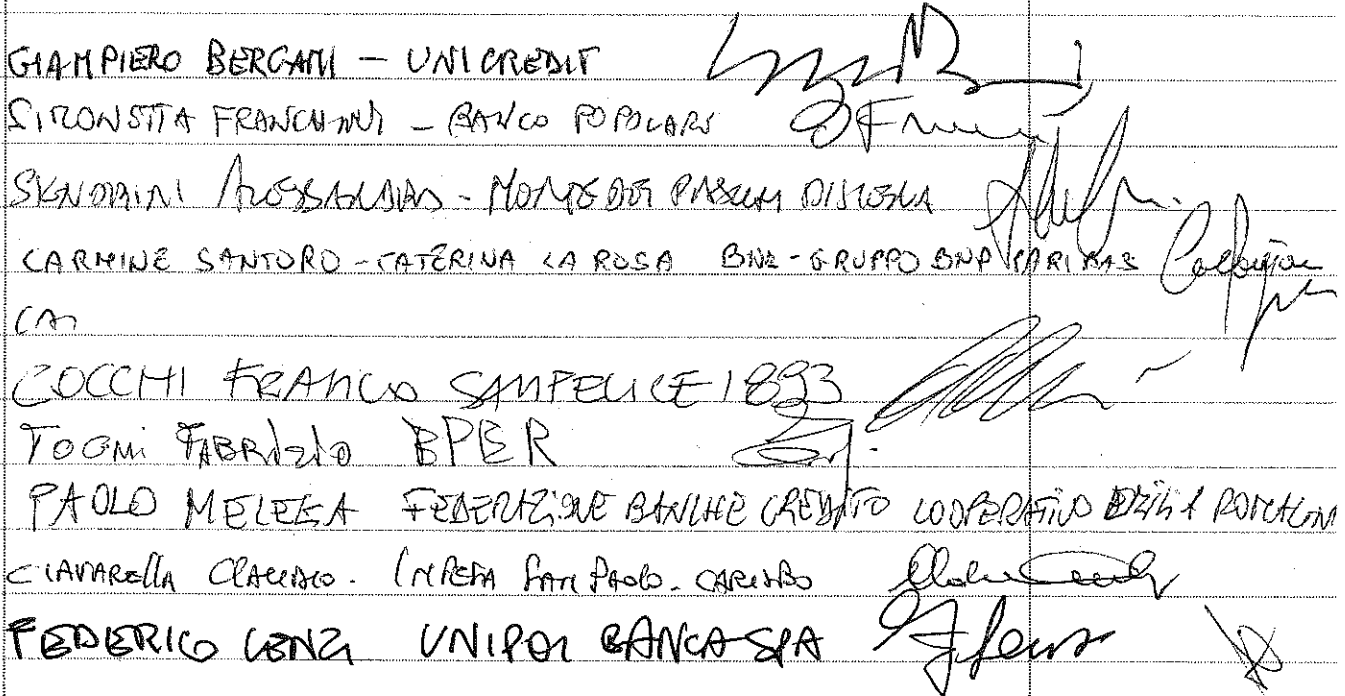 GIAMPIERO BERGAMI - UNICREDIT
SIMONETTA FRANCHINI - BANCO POPOLARE
SIGNORINI ALESSANDRO - MONTE DEI PASCHI DI SIENA
CARMINE SANTORO - CATERINA LA ROSA BNL - GRUPPO BNP PARIBAS
COCCHI FRANCO SANFELICE 1893
TOGNI FABRIZIO BPER
PAOLO MELEGA FEDERAZIONE BANCHE CREDITO COOPERATIVO EMILIA ROMAGNA
CIAVARELLA CLAUDIO. INTESA SAN PAOLO - CARISBO
FEDERICO LENZI UNIPOL BANCA SPA